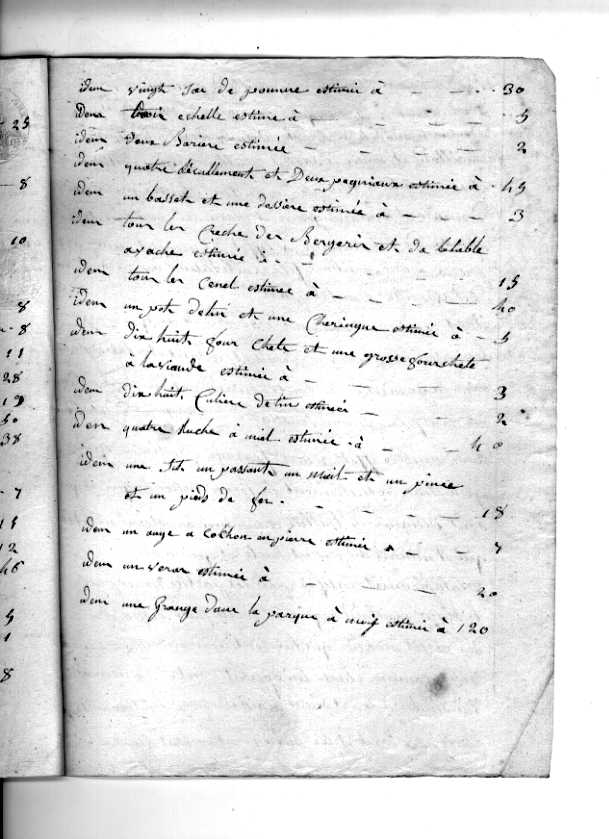 25
8
10
8
8
11
28
12
50
38
7
15
12
46
5
1
8
idem vingt sac de pomme estimé à - - - 30
idem trois echelle estimé à - - - 5
idem deux Bariere estimée - - - - 2
idem quatre et Deux estimée à - 45
idem un basset et une estimée à - - 3
idem tour les Creche des Bergerie et de letable
avache estimée à - - - 15
idem tour les estimée à - - - - 40
idem un pot detin et une Cheringue estimée à - 5
idem dix huit four chete et une grosse fourchete
à laviande estimée à - - - 3
idem dix huit Culiere detin estimée - - 2
idem quatre Ruche à miel estimée à - - 40
idem une un passant un et un pince
et un pieds de fer. - - - - 18
idem un auge a Cochon en pierre estimée à - - 7
idem un verar estimée à - - - 20
idem une Grange dans la parque à estimée à 120